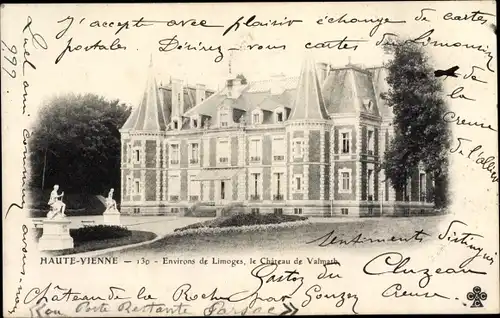 J'accepte avec plaisir échange de cartes
postales. Désirez-vous cartes du Limousin
de la Creuse
de l'allier
Quel ami commun avons
HAUTE-VIENNE — 130 - Environs de Limoges, le Château de Valmath
Sentiments distingués
Gaston Cluzeau
Château de la Roche par Gouzon Creuse
Poste Restante